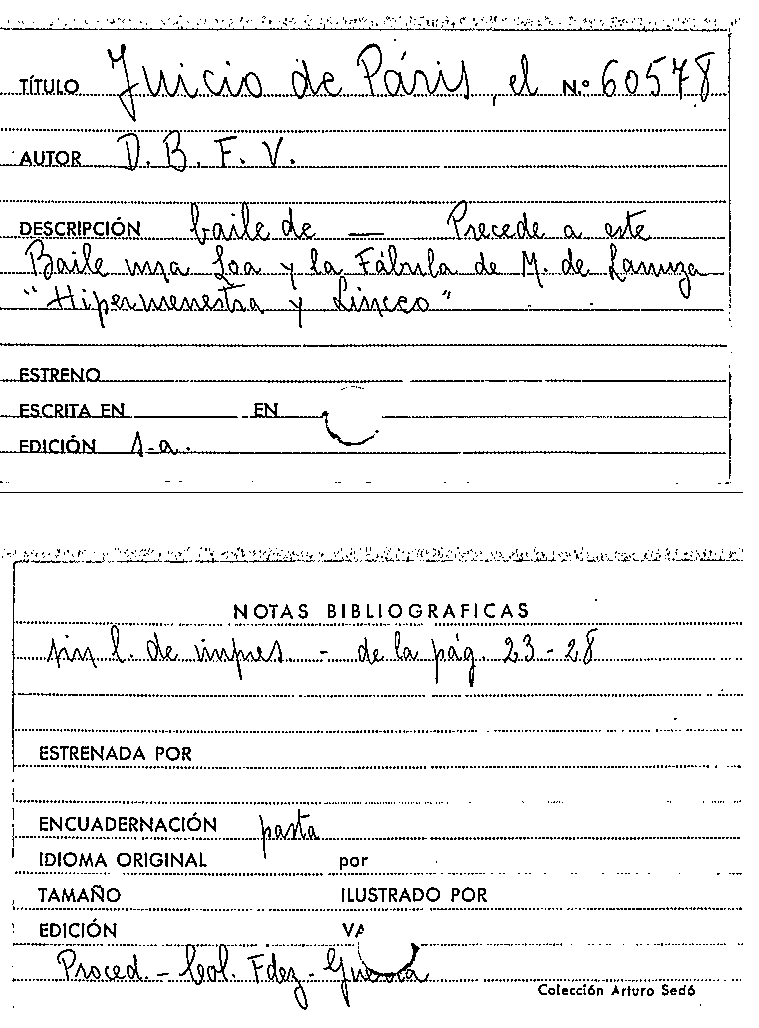 TÍTULO Juicio de Páris, el N.º 60578
AUTOR D. B. F. V.
DESCRIPCIÓN baile de — Precede a este
Baile una Loa y la Fábula de M. de Lanuza
"Hipermenestra y Linceo"
ESTRENO
ESCRITA EN EN
EDICIÓN s.a.
NOTAS BIBLIOGRAFICAS
sin l. de impres. - de la pág. 23-28
ESTRENADA POR
ENCUADERNACIÓN pasta
IDIOMA ORIGINAL por
TAMAÑO ILUSTRADO POR
EDICIÓN
Proced. - Col. Fdez-Guerra
Colección Arturo Sedó